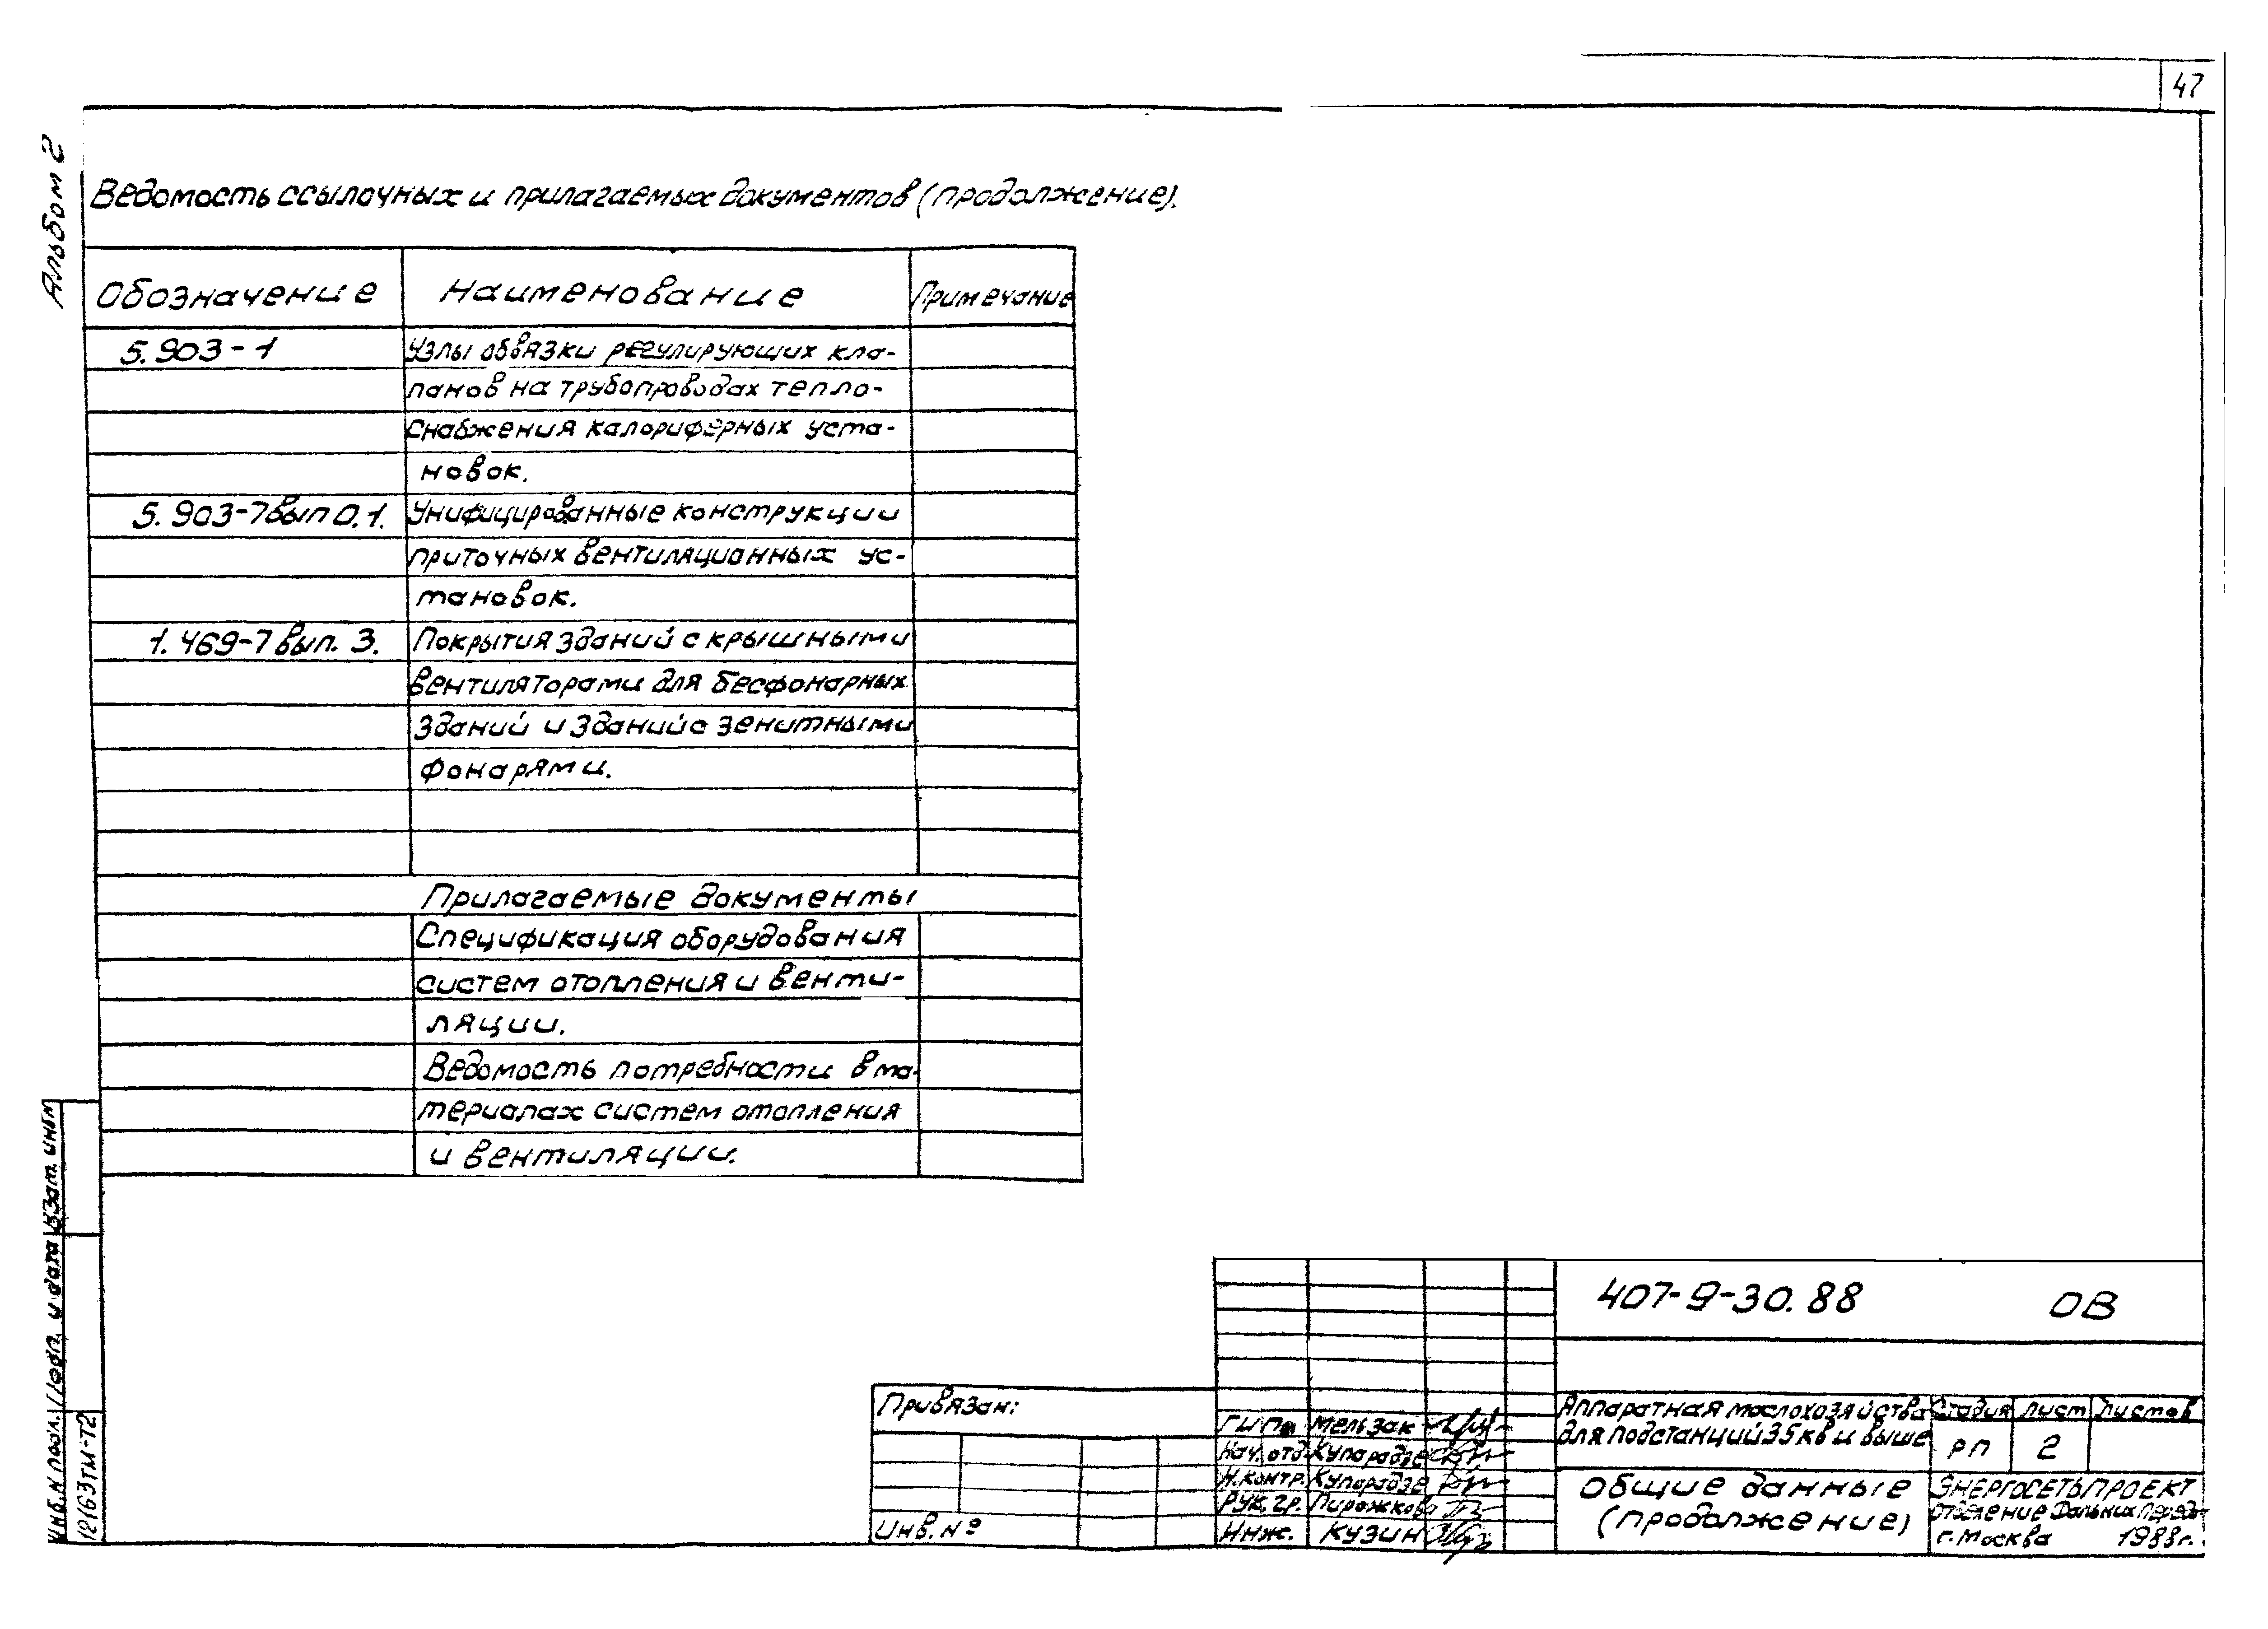 47
Альбом 2
Ведомость ссылочных и прилагаемых документов (продолжение).
Обозначение Наименование Примечание
5.903-1 Узлы обвязки регулирующих кла-
панов на трубопроводах тепло-
снабжения калориферных уста-
новок.
5.903-7 вып 0.1. Унифицированные конструкции
приточных вентиляционных ус-
тановок.
1.469-7 вып. 3. Покрытия зданий с крышными
вентиляторами для бесфонарных
зданий и зданий с зенитными
фонарями.
Прилагаемые документы
Спецификация оборудования
систем отопления и венти-
ляции.
Ведомость потребности в ма-
териалах систем отопления
и вентиляции.
Инв. N подл. Подп. и дата Взам. инв N
12163тм-т2
407-9-30.88 ОВ
Привязан:
Инв. №
ГИП Мельзак
Нач. отд. Купарадзе
Н.контр. Купарадзе
Рук. гр. Пирожкова
Инж. Кузин
Аппаратная маслохозяйства
для подстанций 35 кв и выше
Стадия Лист Листов
РП 2
Общие данные
(продолжение)
ЭНЕРГОСЕТЬПРОЕКТ
Отделение Дальних Передач
г. Москва 1988г.